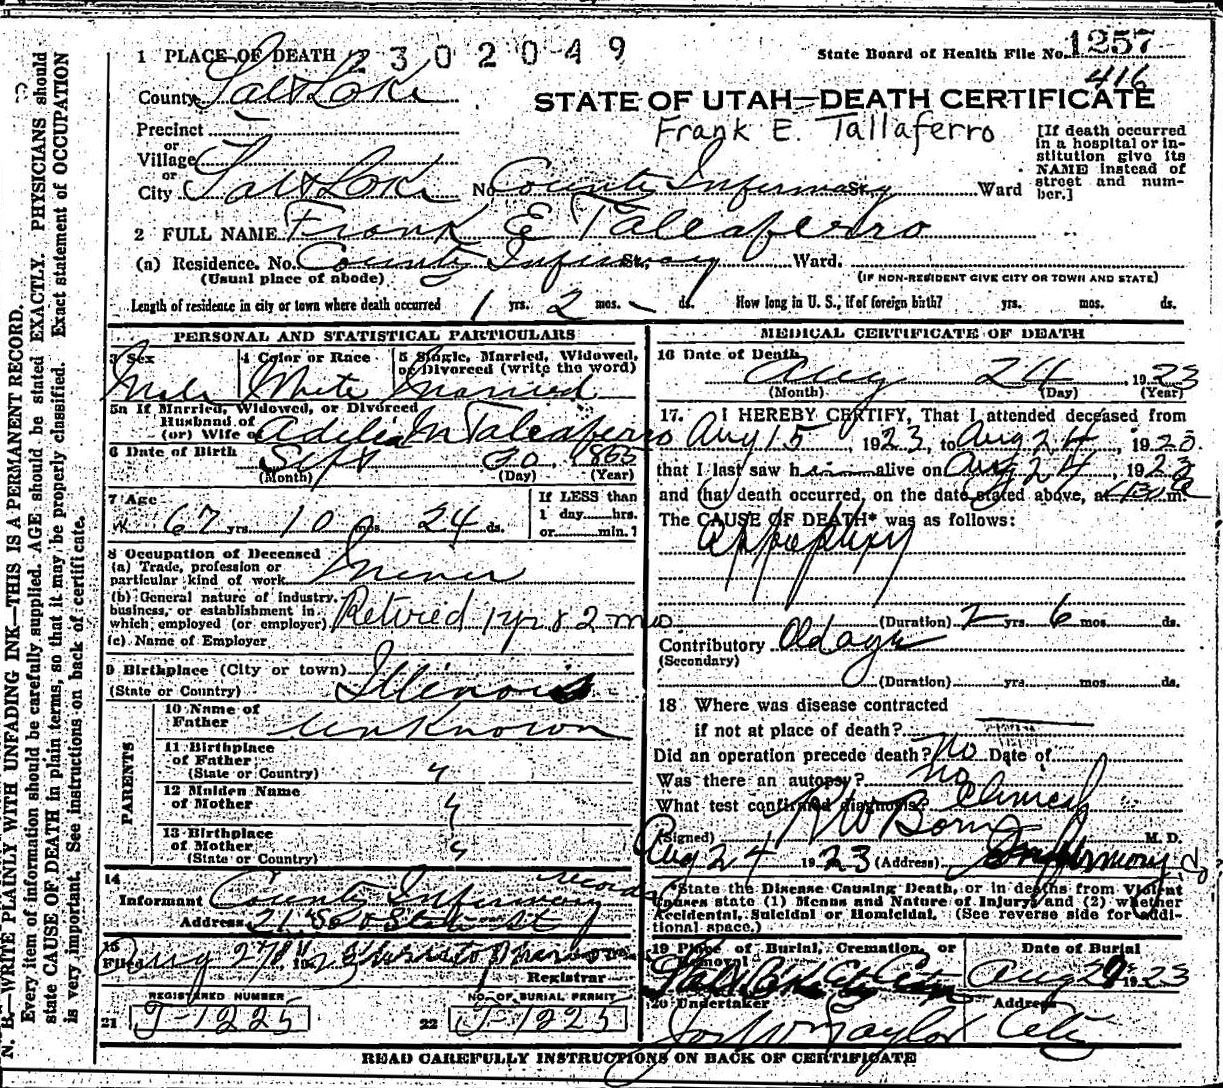 1 PLACE OF DEATH 2302049
State Board of Health File No. 1257
416
County Salt Lake
STATE OF UTAH—DEATH CERTIFICATE
Frank E. Tallaferro
Precinct
or
Village
or
City Salt Lake No. County Infirmary St. Ward
[If death occurred
in a hospital or in-
stitution give its
NAME instead of
street and num-
ber.]
2 FULL NAME Frank E Taleaferro
(a) Residence. No. County Infirmary St. Ward.
(Usual place of abode) (IF NON-RESIDENT GIVE CITY OR TOWN AND STATE)
Length of residence in city or town where death occurred 1 yrs. 2 mos. — ds. How long in U. S., if of foreign birth? yrs. mos. ds.
PERSONAL AND STATISTICAL PARTICULARS
3 Sex 4 Color or Race 5 Single, Married, Widowed,
or Divorced (write the word)
Male White Married
5a If Married, Widowed, or Divorced
Husband of
(or) Wife of Adelia M Taleaferro
6 Date of Birth Sept 30, 1855
(Month) (Day) (Year)
7 Age If LESS than
67 yrs. 10 mos. 24 ds. 1 day hrs.
or min.?
8 Occupation of Deceased
(a) Trade, profession or
particular kind of work Miner
(b) General nature of industry,
business, or establishment in
which employed (or employer) Retired 1 yr & 2 mos
(c) Name of Employer
9 Birthplace (City or town)
(State or Country) Illinois
PARENTS
10 Name of
Father Unknown
11 Birthplace
of Father
(State or Country) "
12 Maiden Name
of Mother "
13 Birthplace
of Mother "
(State or Country)
14
Informant County Infirmary records
Address 21 So & State St
15
Filed Aug 27th, 192
Registrar
REGISTERED NUMBER NO. OF BURIAL PERMIT
21 J-1225 22 J-1225
MEDICAL CERTIFICATE OF DEATH
16 Date of Death
Aug 24, 1923
(Month) (Day) (Year)
17. I HEREBY CERTIFY, That I attended deceased from
Aug 15, 1923, to Aug 24, 1923.
that I last saw him alive on Aug 24, 1923
and that death occurred, on the date stated above, at m.
The CAUSE OF DEATH* was as follows:
Apoplexy
(Duration) 2 yrs. 6 mos. ds.
Contributory Old age
(Secondary)
(Duration) yrs. mos. ds.
18 Where was disease contracted
if not at place of death?
Did an operation precede death? No Date of
Was there an autopsy? no
What test confirmed diagnosis? Clinical
(Signed) M. D.
Aug 24 1923 (Address) Infirmary
*State the Disease Causing Death, or in deaths from Violent
Causes state (1) Means and Nature of Injury; and (2) whether
Accidental, Suicidal or Homicidal. (See reverse side for addi-
tional space.)
19 Place of Burial, Cremation, or Removal Date of Burial
Salt Lake City Cem Aug 29 1923
20 Undertaker Address
Jos Wm Taylor City
READ CAREFULLY INSTRUCTIONS ON BACK OF CERTIFICATE
N. B.—WRITE PLAINLY WITH UNFADING INK—THIS IS A PERMANENT RECORD.
Every item of information should be carefully supplied. AGE should be stated EXACTLY. PHYSICIANS should
state CAUSE OF DEATH in plain terms, so that it may be properly classified. Exact statement of OCCUPATION
is very important. See instructions on back of certificate.